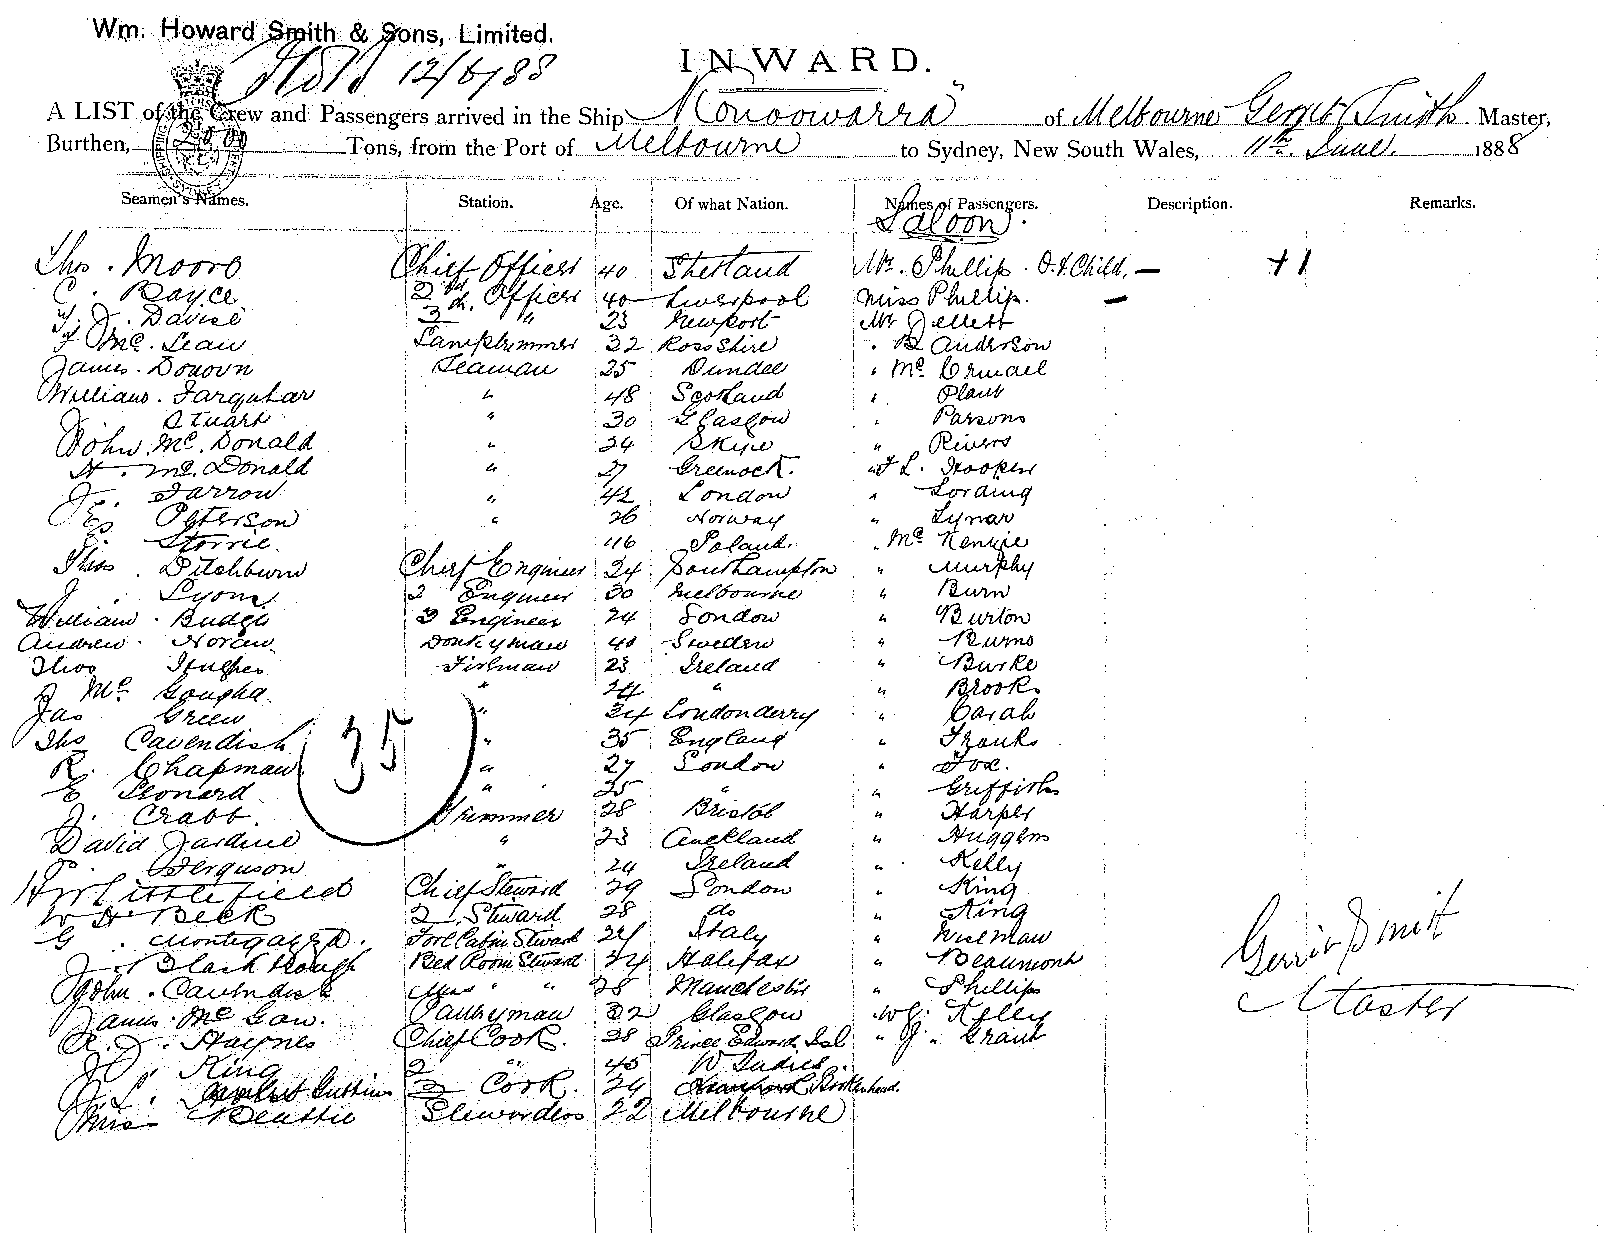 Wm. Howard Smith & Sons, Limited.
12/6/88
INWARD.
A LIST of the Crew and Passengers arrived in the Ship Konoowarra of Melbourne Smith Master,
Burthen, Tons, from the Port of Melbourne to Sydney, New South Wales, 11th June 1888
Seamen's Names. Station. Age. Of what Nation. Names of Passengers. Description. Remarks.
Saloon
Thos. Moore Chief Officer 40 Shetland Mr. Phillip &Child. — +1
C. Bayce 2nd Officer 40 Liverpool Miss Phillip. —
Davise 3 " 23 Newport Mr Jellett
Mc. Lean Lamptrimmer 32 Ross Shire " B Anderson
James Donovn Seaman 25 Dundee " Mc
William Farquhar " 48 Scotland " Plant
Stuart " 30 Glasgow " Parsons
John Mc. Donald " 24 Skye " Rivers
H. Mc. Donald " 27 Greenock. " Hooper
Farrow " 42 London " Lording
Peterson " 26 Norway " Lynar
Storrie 46 Poland. " Mc Kenzie
Thos. Ditchburn Chief Engineer 34 Southampton " Murphy
J. Lyons 2 Engineer 30 Melbourne " Burn
William Budge 3 Engineer 24 London " Burton
Andrew Noren Donkyman 40 Sweden " Burns
Thos Hughes Fireman 23 Ireland " Burke
J Mc Gougha " 24 " " Brooks
Jas Green " 34 Londonderry " Carah
Ths Cavendish " 35 England " Franks
35
R. Chapman " 27 London " Fox.
E Leonard " 25 " " Griffiths
J. Crabb. Trimmer 28 Bristol " Harper
David Jardine " 23 Auckland " Huggens
Ferguson " 24 Ireland " Kelly
H W Littlefield Chief Steward 29 London " King
W H Beck 2 Steward 28 do " King
G. Fore Cabin Steward 24 Italy " Wiseman
J. Blackhough Bed Room Steward 24 Halifax " Beaumont
John Cavendish Mess " " 28 Manchester " Phillips
James Mc Gaw. Pantryman 22 Glasgow Kelly
Haynes Chief Cook. 28 Prince Edward Isl " G. Grant
King 2 " 45 W Indies.
3 Cook. 24 Birkenhead.
Miss Beattie Stewardess 22 Melbourne
Smith
Master